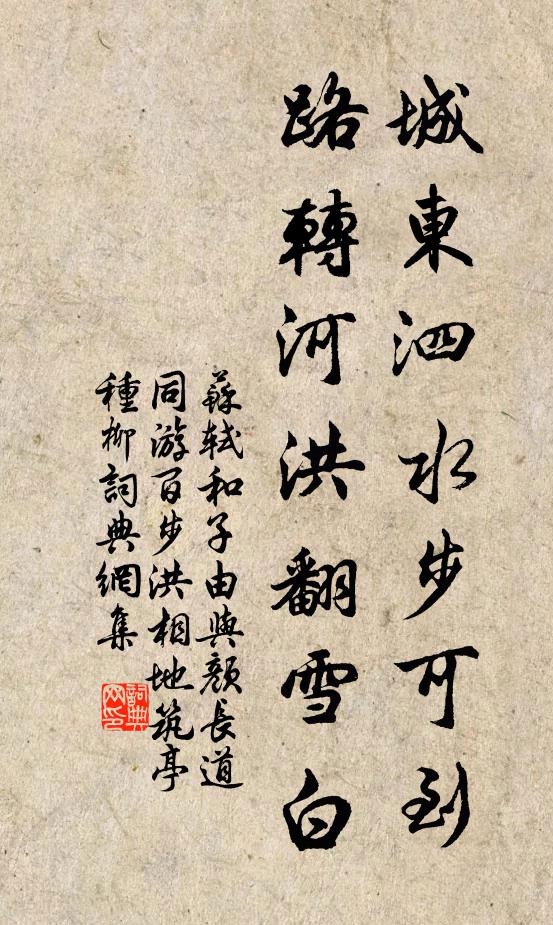 城東泗水步可到
路轉河洪翻雪白
蘇軾和子由與顏長道
同游百步洪相地筑亭
種柳詞典網集
詞典
网印